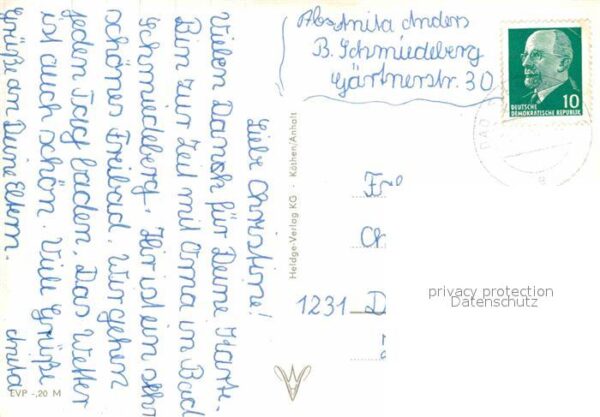 Abs. Anita Anders
B. Schmiedeberg
Gärtnerstr. 30
DEUTSCHE
DEMOKRATISCHE REPUBLIK
10
BAD
Liebe Christine!
Vielen Dank für Deine Karte.
Bin zur Zeit mit Oma in Bad
Schmiedeberg. Hir ist ein sehr
schönes Freibad. Wir gehen
jeden Tag baden. Das Wetter
ist auch schön. Viele Grüße
Grüße an Deine Eltern. Anita
Heldge-Verlag KG · Köthen/Anhalt
1231
privacy protection
Datenschutz
EVP -,20 M